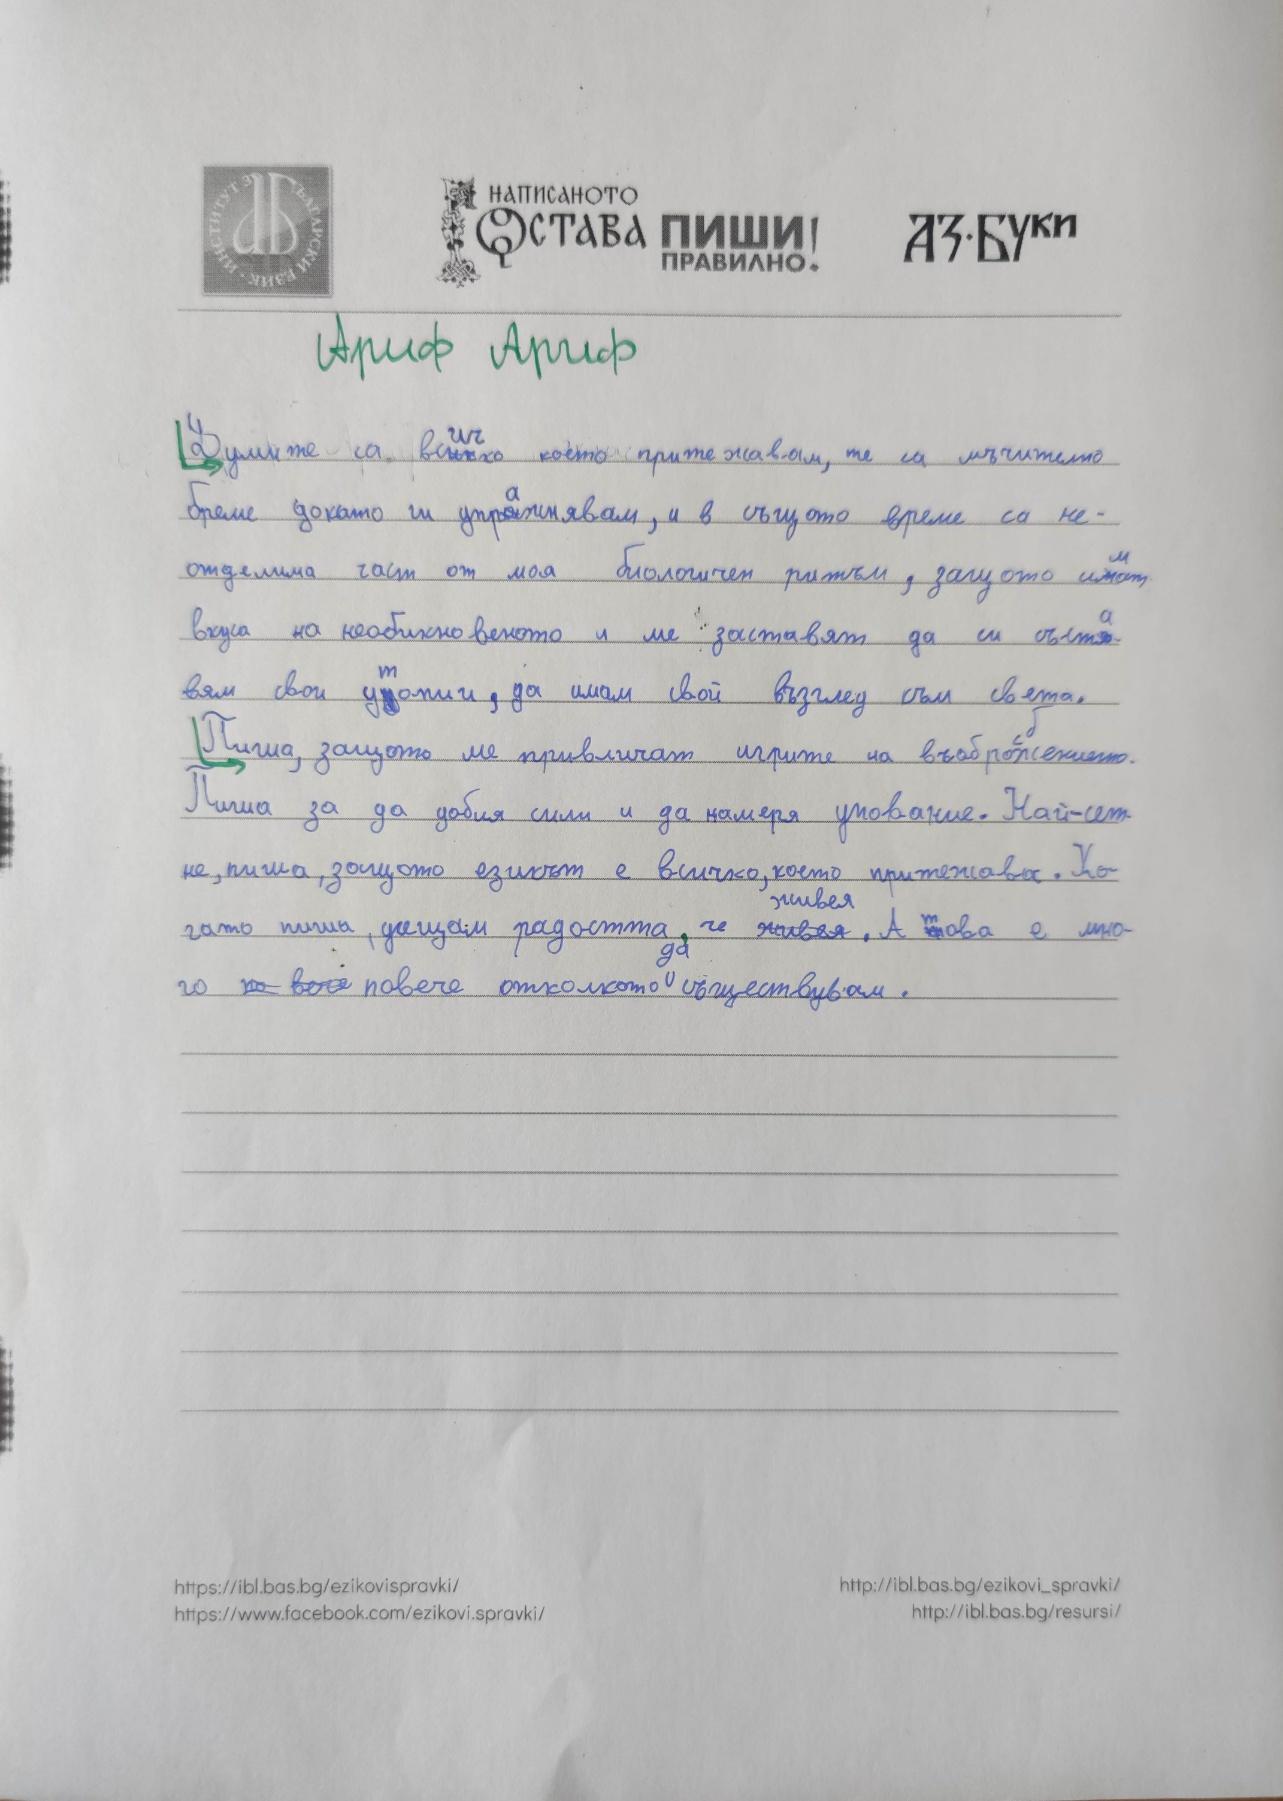 ИНСТИТУТ ЗА БЪЛГАРСКИ ЕЗИК
НАПИСАНОТО
ОСТАВА ПИШИ!
ПРАВИЛНО!
АЗ·БУКИ
Ариф Ариф
Думите са всичко което притежавам, те са мъчително
бреме докато ги упражнявам, и в същото време са не-
отделима част от моя биологичен ритъм, защото имат
вкуса на необикновеното и ме заставят да си съста-
вям свои утопии, да имам свой възглед към света.
Пиша, защото ме привличат игрите на въображението.
Пиша за да добия сили и да намеря упование. Най-сет
не, пиша, защото езикът е всичко, което притежава. Ко-
гато пиша, усещам радостта, че живея. А това е мно-
го повече отколкото да съществувам.
https://ibl.bas.bg/ezikovispravki/
http://ibl.bas.bg/ezikovi_spravki/
https://www.facebook.com/ezikovi.spravki/
http://ibl.bas.bg/resursi/